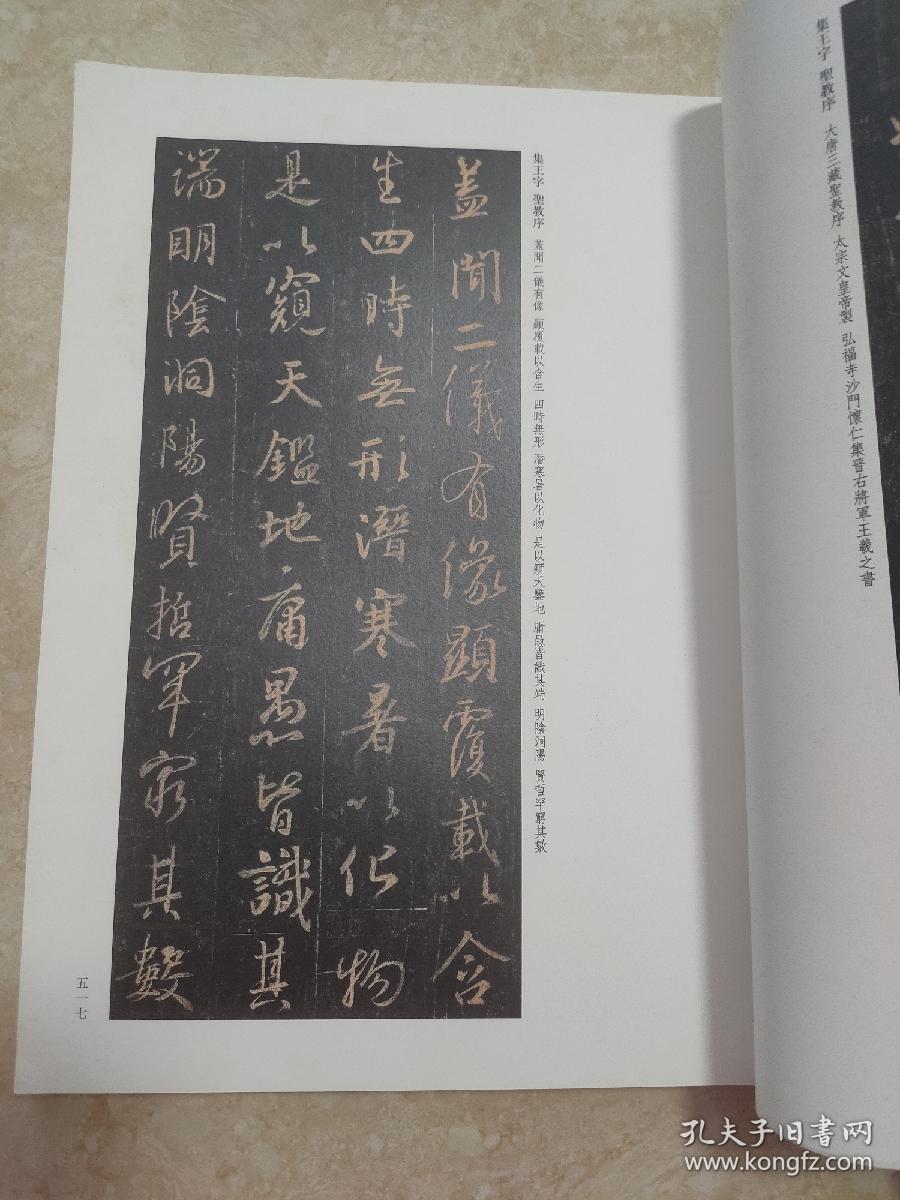 集王字 聖教序 大唐三藏聖教序 太宗文皇帝製 弘福寺沙門懷仁集晉右將軍王羲之書
集王字 聖教序 蓋聞二儀有像 顯覆載以含生 四時無形 潛寒暑以化物 是以窺天鑒地 庸愚皆識其端 明陰洞陽 賢哲罕窮其數
蓋聞二儀有像顯覆載以含
生四時無形潛寒暑以化物
是以窺天鑑地庸愚皆識其
端明陰洞陽賢哲罕窮其數
五一七
孔夫子旧书网
www.kongfz.com